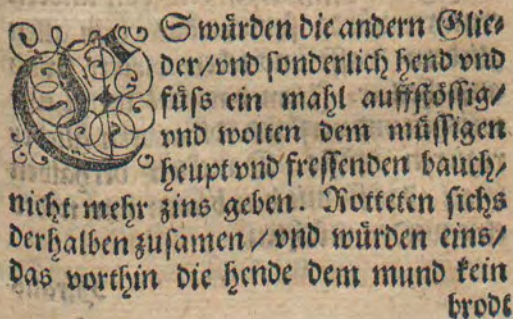 ES würden die andern Glie⸗
der/vnd sonderlich hend vnd
füſs ein mahl auffſtöſſig/
vnd wolten dem müſſigen
heupt vnd freſſenden bauch/
nicht mehr zins geben. Rotteten ſichs
derhalben zuſamen / vnd würden eins/
das vorthin die hende dem mund kein
brodt